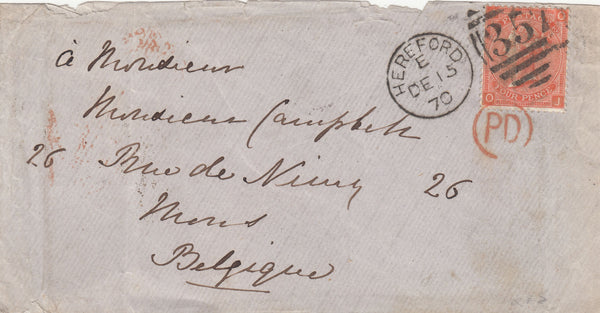 à Monsieur
Monsieur Campbell
26 Rue de Nimy 26
Mons
Belgique
HEREFORD
E
DE 15
70
351
FOUR PENCE
O J
PD